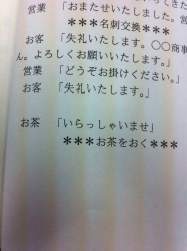 営業　「おまたせいたしました。営
＊＊＊名刺交換＊＊＊
お客　「失礼いたします。〇〇商事
ん。よろしくお願いいたします。」
営業　「どうぞお掛けください。」
お客　「失礼いたします。」
お茶　「いらっしゃいませ
＊＊＊お茶をおく＊＊＊